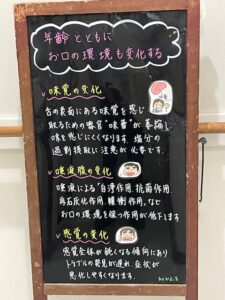 年齢とともに
お口の環境も変化する
味覚の変化
舌の表面にある味覚を感じ
取るための器官"味蕾"が萎縮し
味を感じにくくなります。塩分の
過剰摂取に注意が必要です。
唾液腺の変化
唾液による「自浄作用、抗菌作用、
再石灰化作用、緩衝作用、など
お口の環境を保つ作用が低下します
感覚の変化
感覚全体が鈍くなる傾向にあり
トラブルの発見が遅れ症状が
悪化しやすくなります。